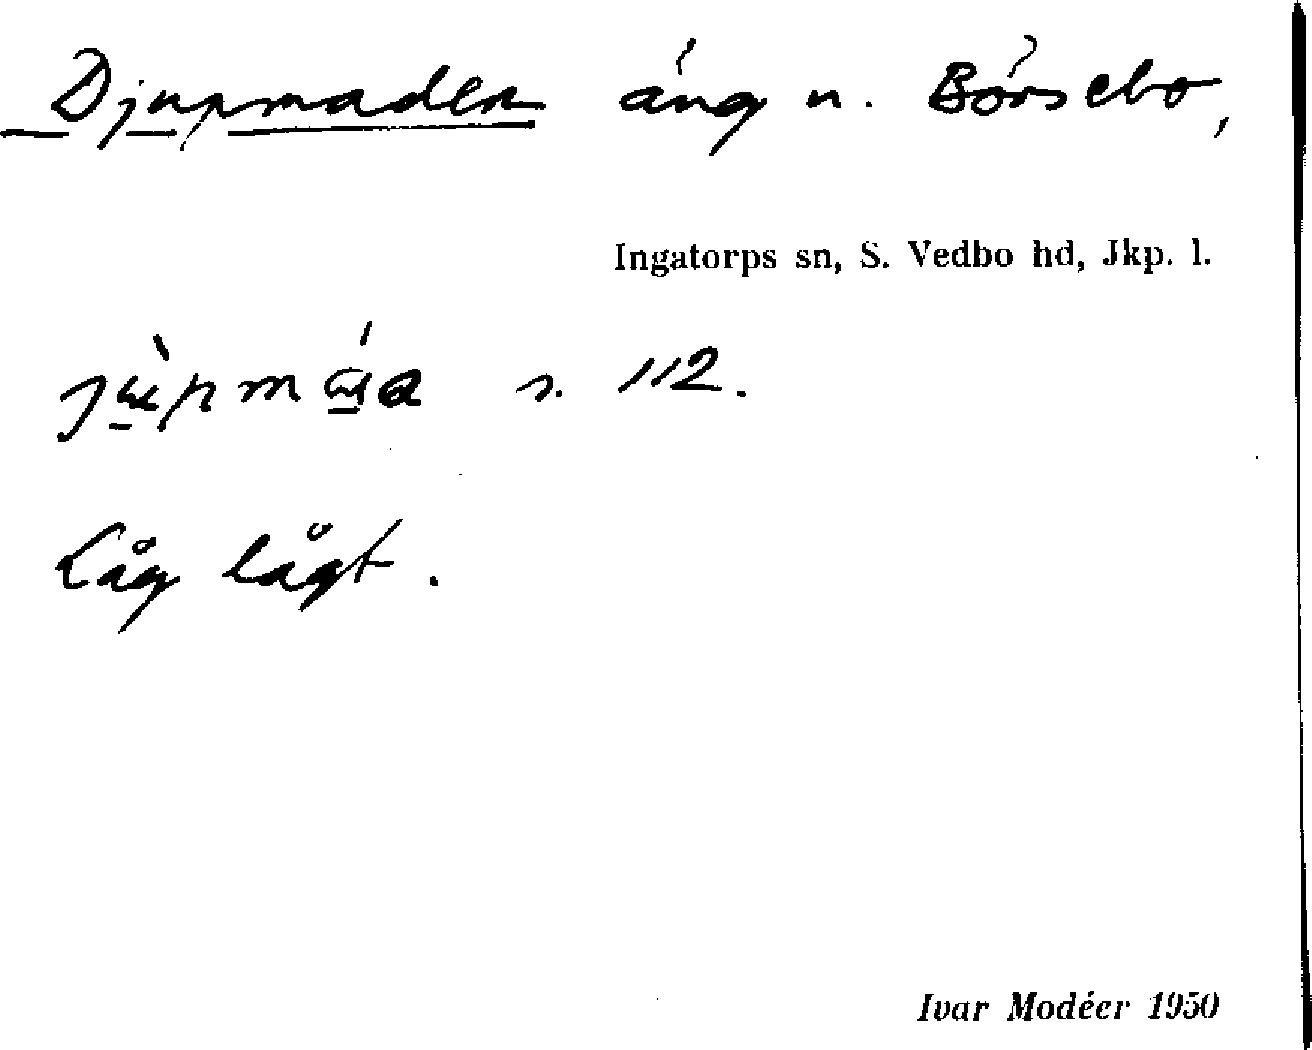 Djupmaden äng n. Börsebo,
Ingatorps sn, S. Vedbo hd, Jkp. l.
s. 112.
Låg lågt.
Ivar Modéer 1950